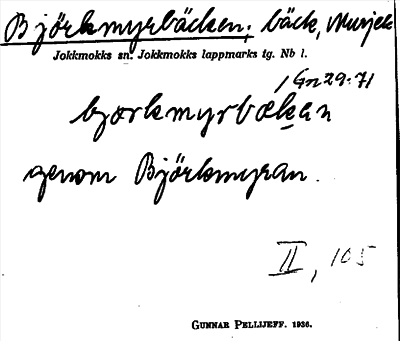 Björkmyrbäcken; bäck, Murjek
Jokkmokks sn. Jokkmokks lappmarks tg. Nb l.
/Gn 29:71
bjorkmyrbœkan
genom Björkmyran.
II, 105
GUNNAR PELLIJEFF. 1936.